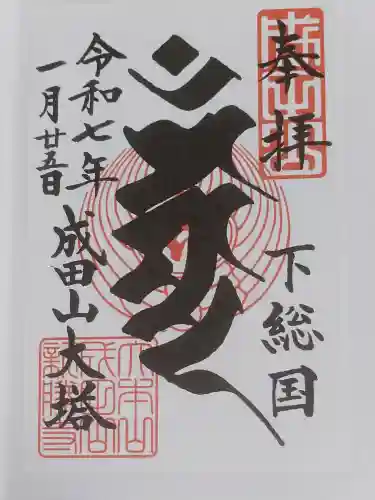 奉拝
下総国
令和七年
一月廿五日
成田山大塔